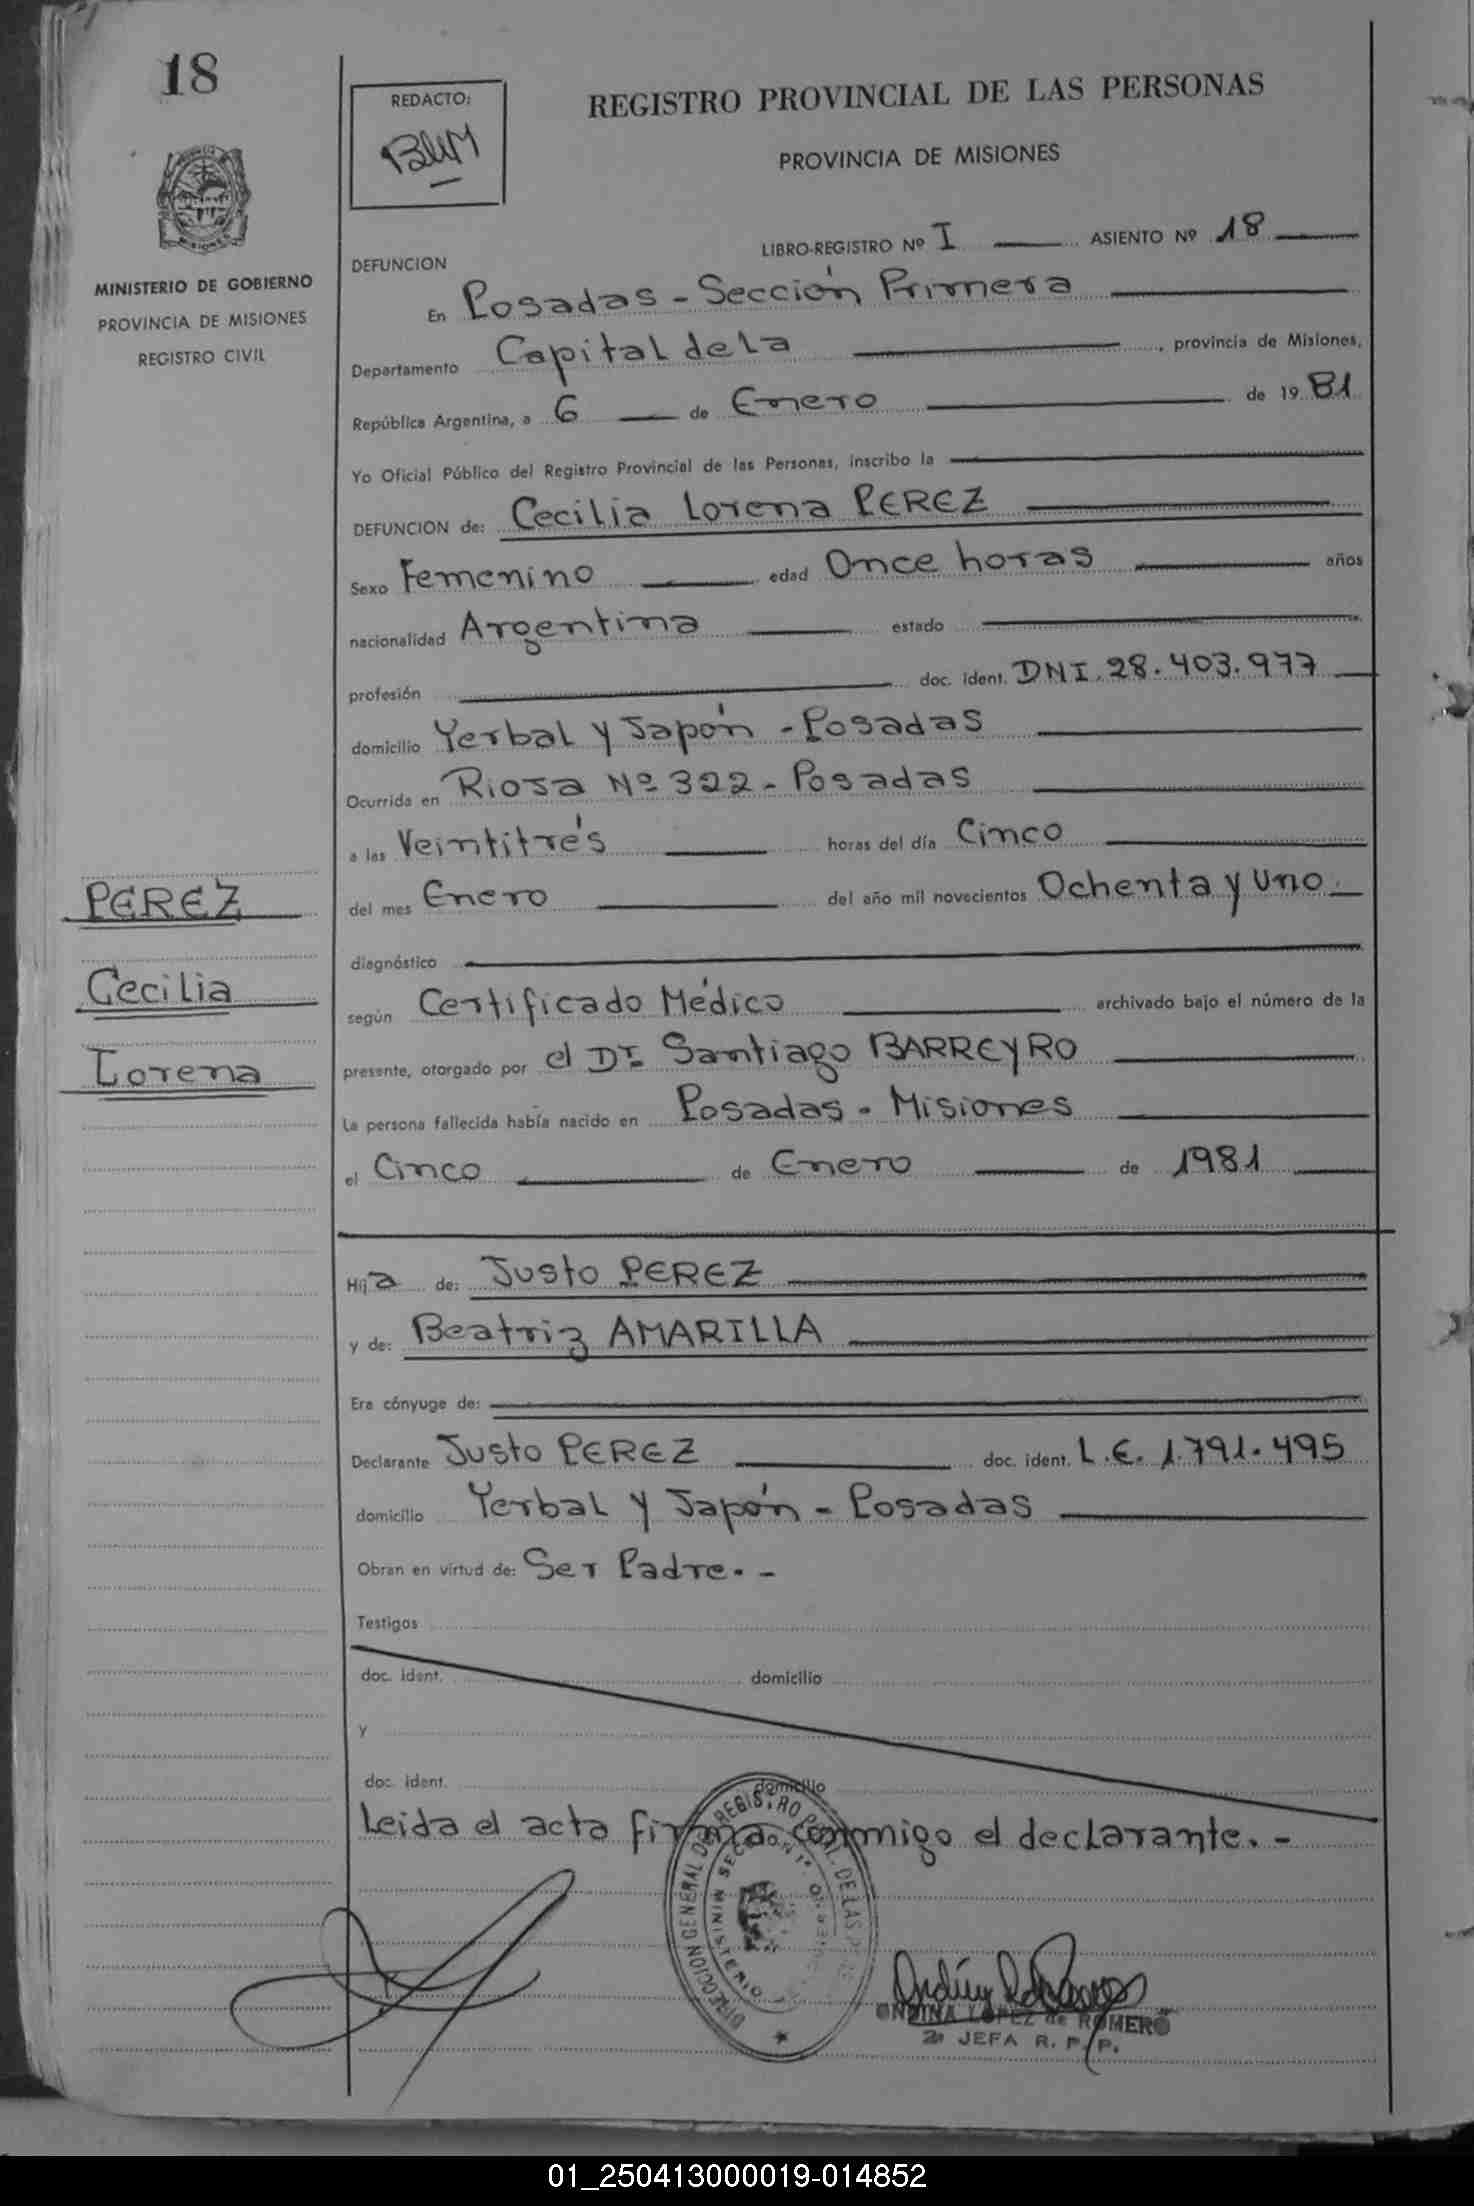 18
REDACTO:
BLM
REGISTRO PROVINCIAL DE LAS PERSONAS
PROVINCIA DE MISIONES
MISIONES
MINISTERIO DE GOBIERNO
PROVINCIA DE MISIONES
REGISTRO CIVIL
LIBRO-REGISTRO Nº I ASIENTO Nº 18
DEFUNCION
En Posadas - Sección Primera
Departamento Capital de la, provincia de Misiones,
República Argentina, a 6 de Enero de 1981
Yo Oficial Público del Registro Provincial de las Personas, inscribo la
DEFUNCION de: Cecilia Lorena PEREZ
Sexo Femenino edad Once horas años
nacionalidad Argentina estado
profesión doc. ident. DNI. 28.403.977
domicilio Yerbal y Japón - Posadas
Ocurrida en Rioja Nº 322 - Posadas
a las Veintitrés horas del día Cinco
del mes Enero del año mil novecientos Ochenta y Uno
PEREZ
Cecilia
Lorena
diagnóstico
según Certificado Médico archivado bajo el número de la
presente, otorgado por el Dr. Santiago BARREYRO
La persona fallecida había nacido en Posadas - Misiones
el Cinco de Enero de 1981
Hija de: Justo PEREZ
y de: Beatriz AMARILLA
Era cónyuge de:
Declarante Justo PEREZ doc. ident. L.E. 1.791.495
domicilio Yerbal y Japón - Posadas
Obran en virtud de: Ser Padre. -
Testigos
doc. ident. domicilio
y
doc. ident. domicilio
Leida el acta firma conmigo el declarante. -
DIRECCION GENERAL DEL REGISTRO PCIAL. DE LAS
MINISTERIO
SECCION 1ª
ONDINA LOPEZ de ROMERO
2ª JEFA R. P. P.
01_250413000019-014852